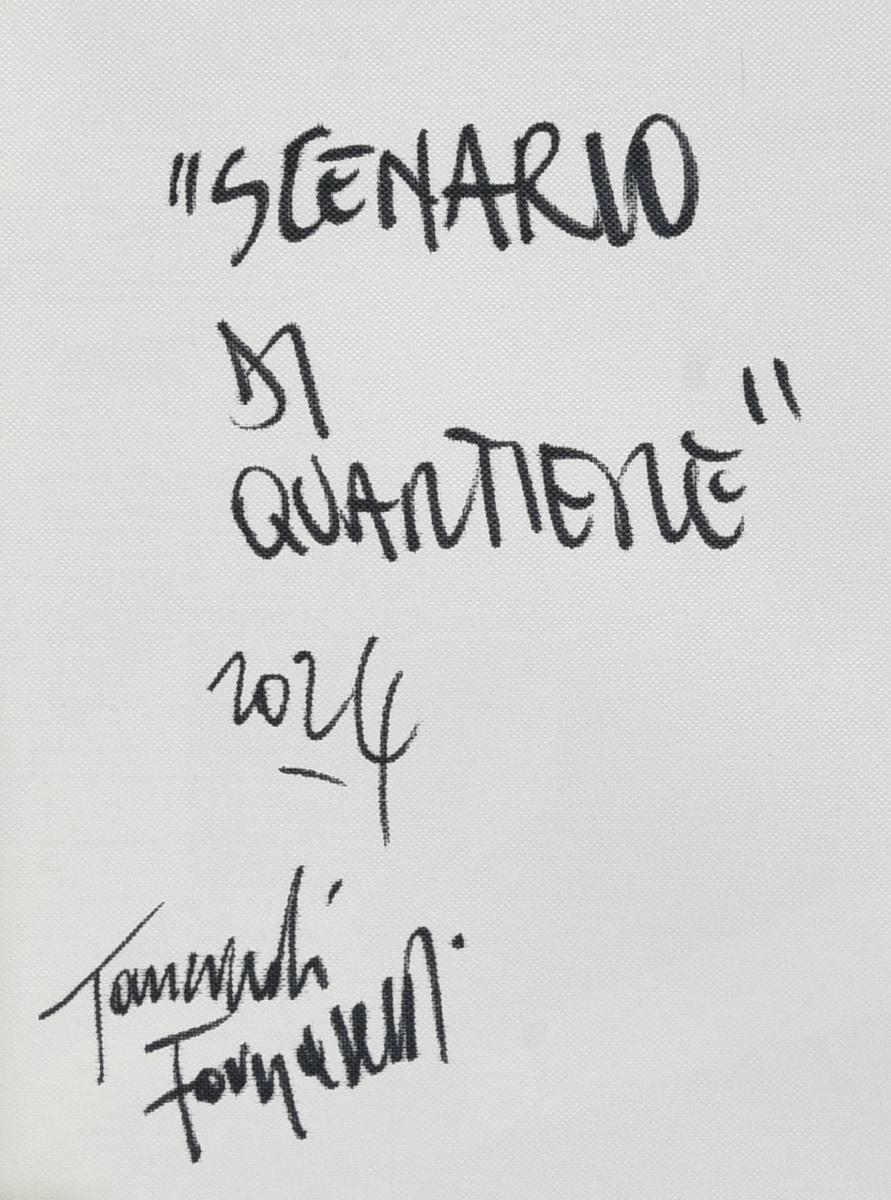 "SCENARIO
DI
QUARTIERE"
2024
Tancredi
Fornasetti